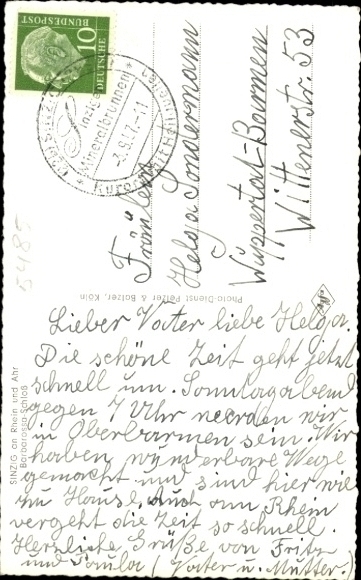 10
DEUTSCHE
BUNDESPOST
Mineralbrunnen
2.9.57.-11
Fräulein
Helga Sondermann
Wuppertal-Barmen
Wittenerstr. 53
5485
Photo-Dienst Pelzer & Balzer, Köln
SINZIG an Rhein und Ahr
Barbarossa-Schloß
Lieber Vater liebe Helga.
Die schöne Zeit geht jetzt
schnell um. Sonntagabend
gegen 7 Uhr werden wir
in Oberbarmen sein. Wir
haben wunderbare Wege
gemacht und sind hier wie
zu Hause. Auch am Rhein
vergeht die Zeit so schnell.
Herzliche Grüße von Fritz
und (Vater u. Mutter.)